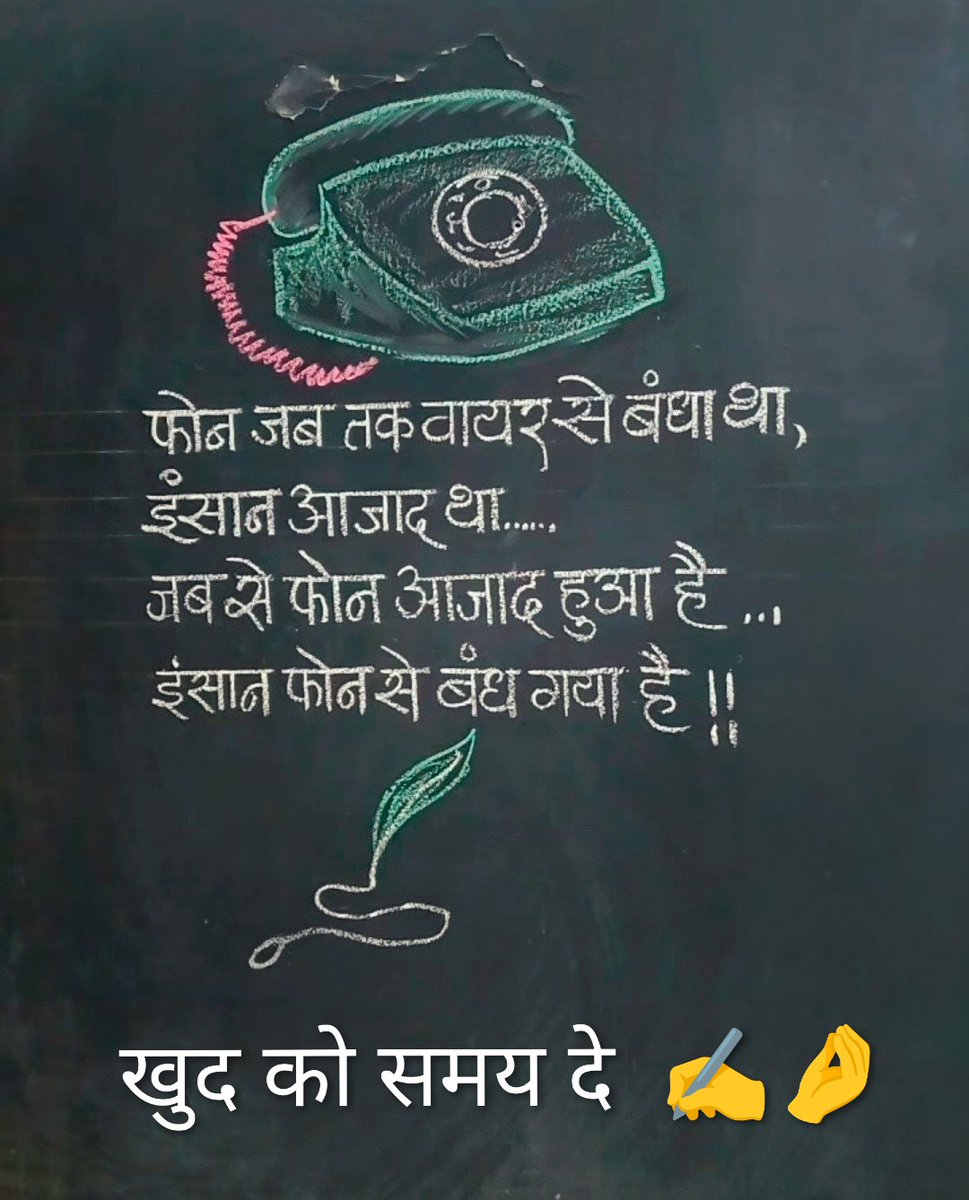 फोन जब तक वायर से बंधा था,
इंसान आजाद था......
जब से फोन आजाद हुआ है ...
इंसान फोन से बंध गया है !!
खुद को समय दे ✍️🤌